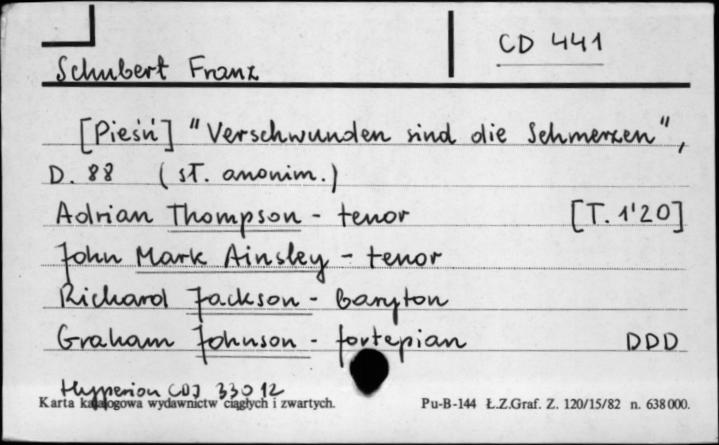 CD 441
Schubert Franz
[Pieśń] "Verschwunden sind die Schmerzen",
D. 88 (sł. anonim.)
Adrian Thompson - tenor [T. 1'20]
John Mark Ainsley - tenor
Richard Jackson - baryton
Graham Johnson - fortepian DDD
Hyperion CDJ 33012
Karta katalogowa wydawnictw ciągłych i zwartych. Pu-B-144 Ł.Z.Graf. Z. 120/15/82 n. 638000.